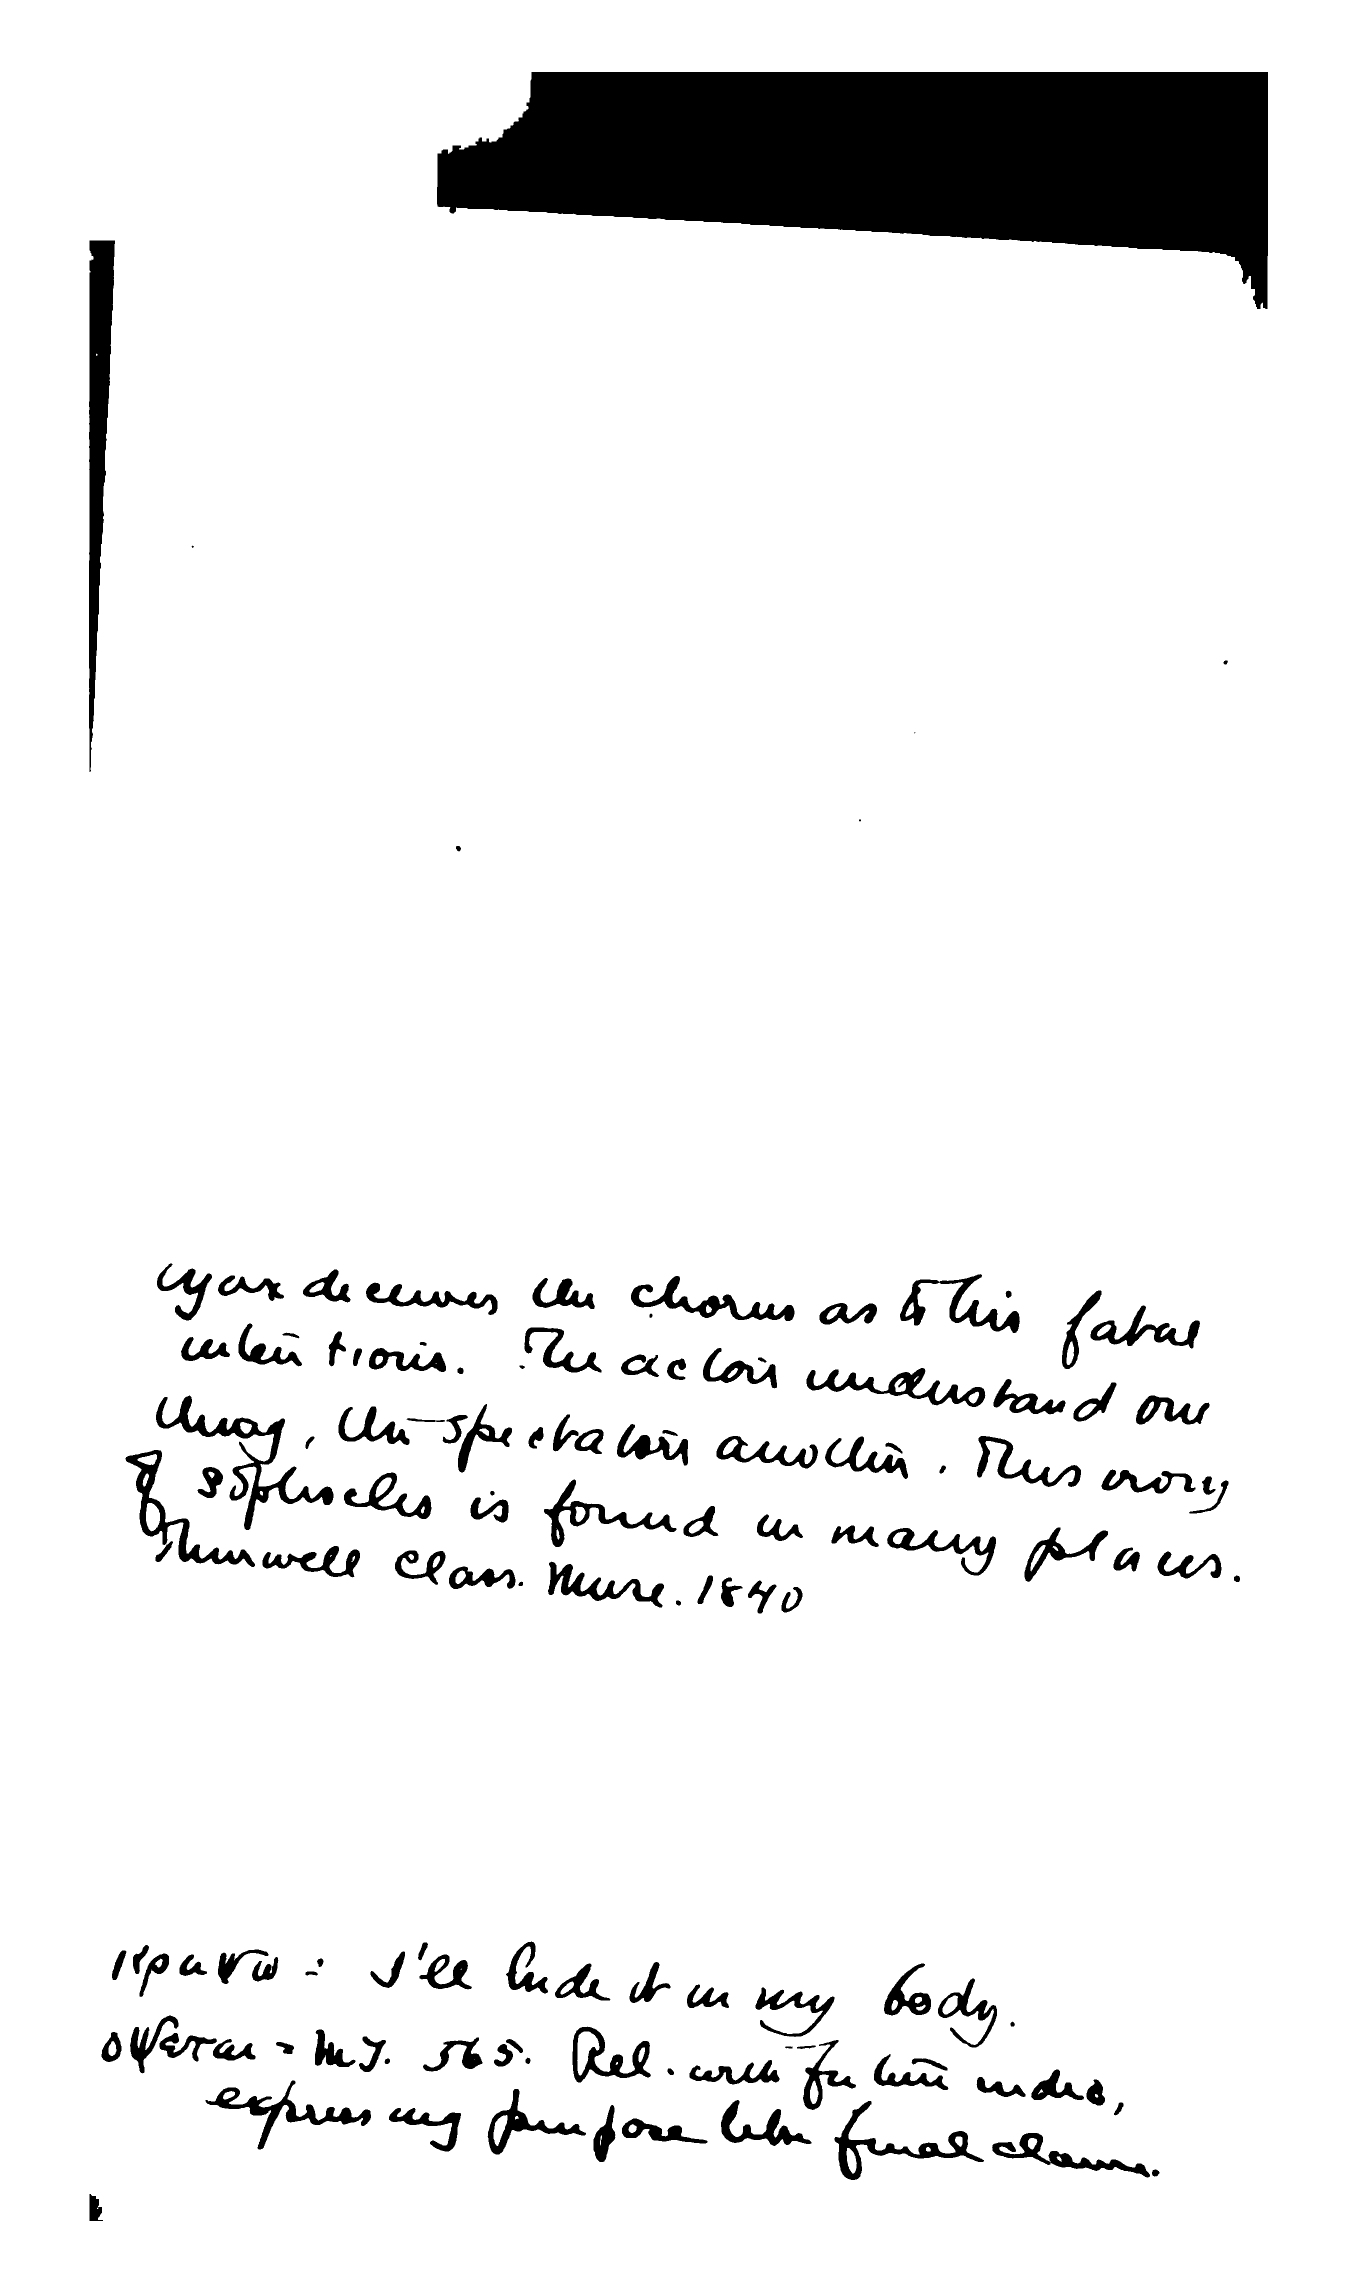 Ajax deceives the chorus as to his fatal
intentions. The actors understand one
thing, the spectators another. This irony
of Sophocles is found in many places.
Thirlwell Class. Muse. 1840
κρύψω = I'll hide it in my body.
οψεται = M.T. 565. Rel. with future indic,
expressing purpose like final clause.